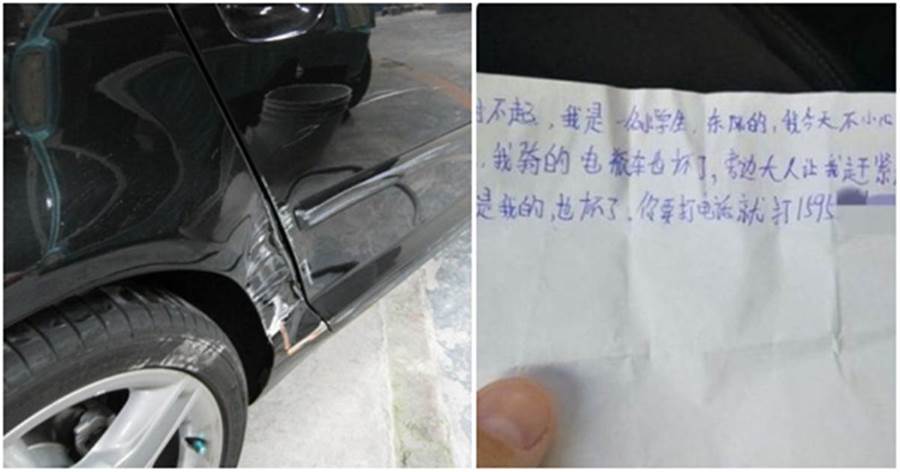 对不起，我是一名小学生，东阳的，我今天不小心
，我骑的电瓶车也坏了，旁边大人让我赶紧
是我的，也坏了，你要打电话就打1595